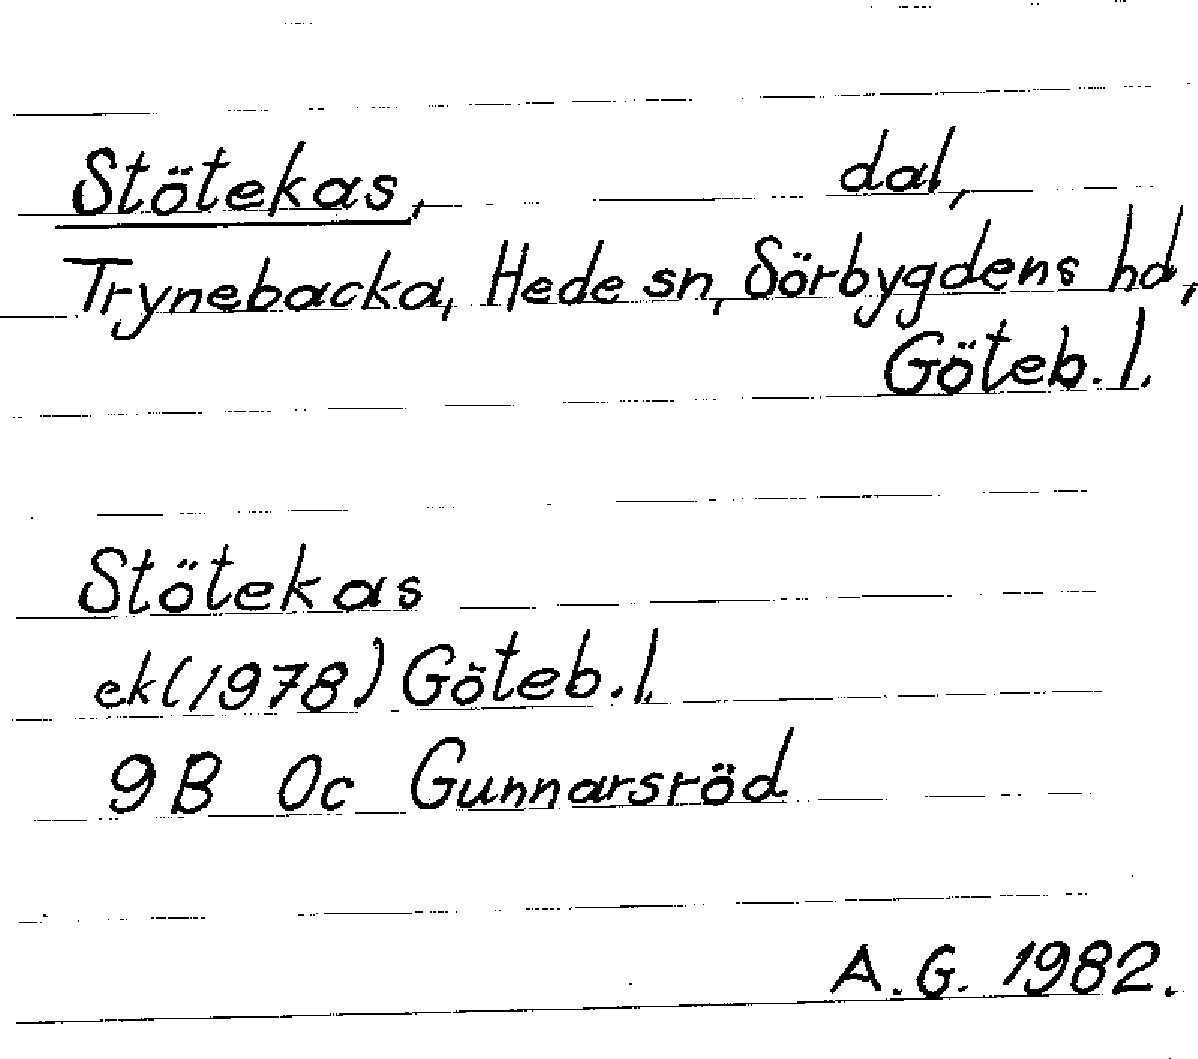 Stötekas, dal,
Trynebacka, Hede sn, Sörbygdens hd,
Göteb. l.
Stötekas
ek (1978) Göteb. l.
9B 0c Gunnarsröd
A.G. 1982.